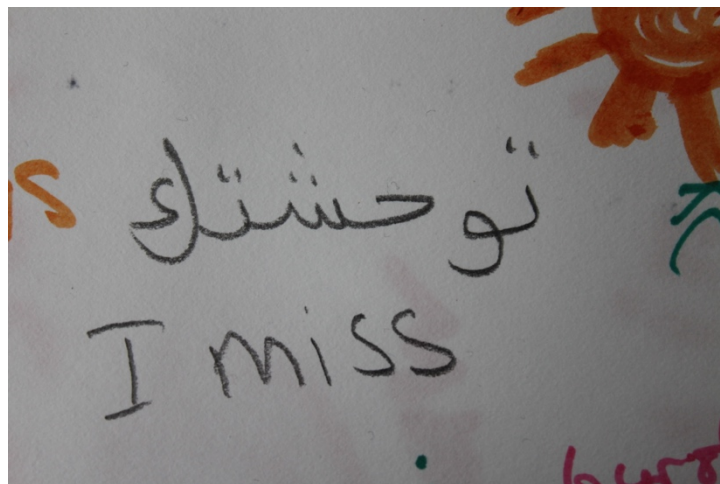 توحشتك
I miss